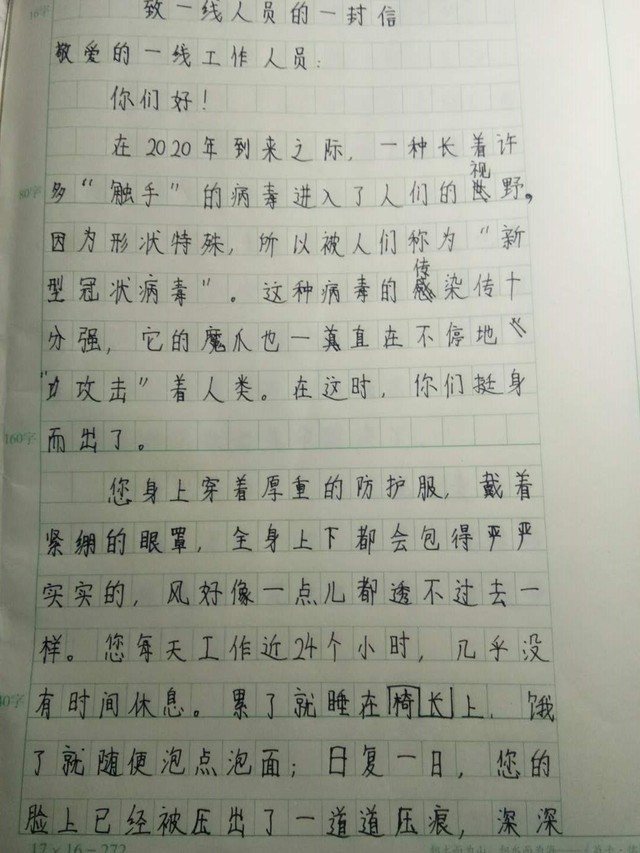 16字
致一线人员的一封信
敬爱的一线工作人员:
你们好!
在2020年到来之际,一种长着许
多“触手”的病毒进入了人们的视野,
因为形状特殊,所以被人们称为“新
型冠状病毒”。这种病毒的传染传十
分强,它的魔爪也一直在不停地
“攻击”着人类。在这时,你们挺身
而出了。
80字
160字
您身上穿着厚重的防护服,戴着
紧绷的眼罩,全身上下都会包得严严
实实的,风好像一点儿都透不过去一
样。您每天工作近24个小时,几乎没
有时间休息。累了就睡在椅长上,饿
了就随便泡点泡面;日复一日,您的
脸上已经被压出了一道道压痕,深深
17×16=272